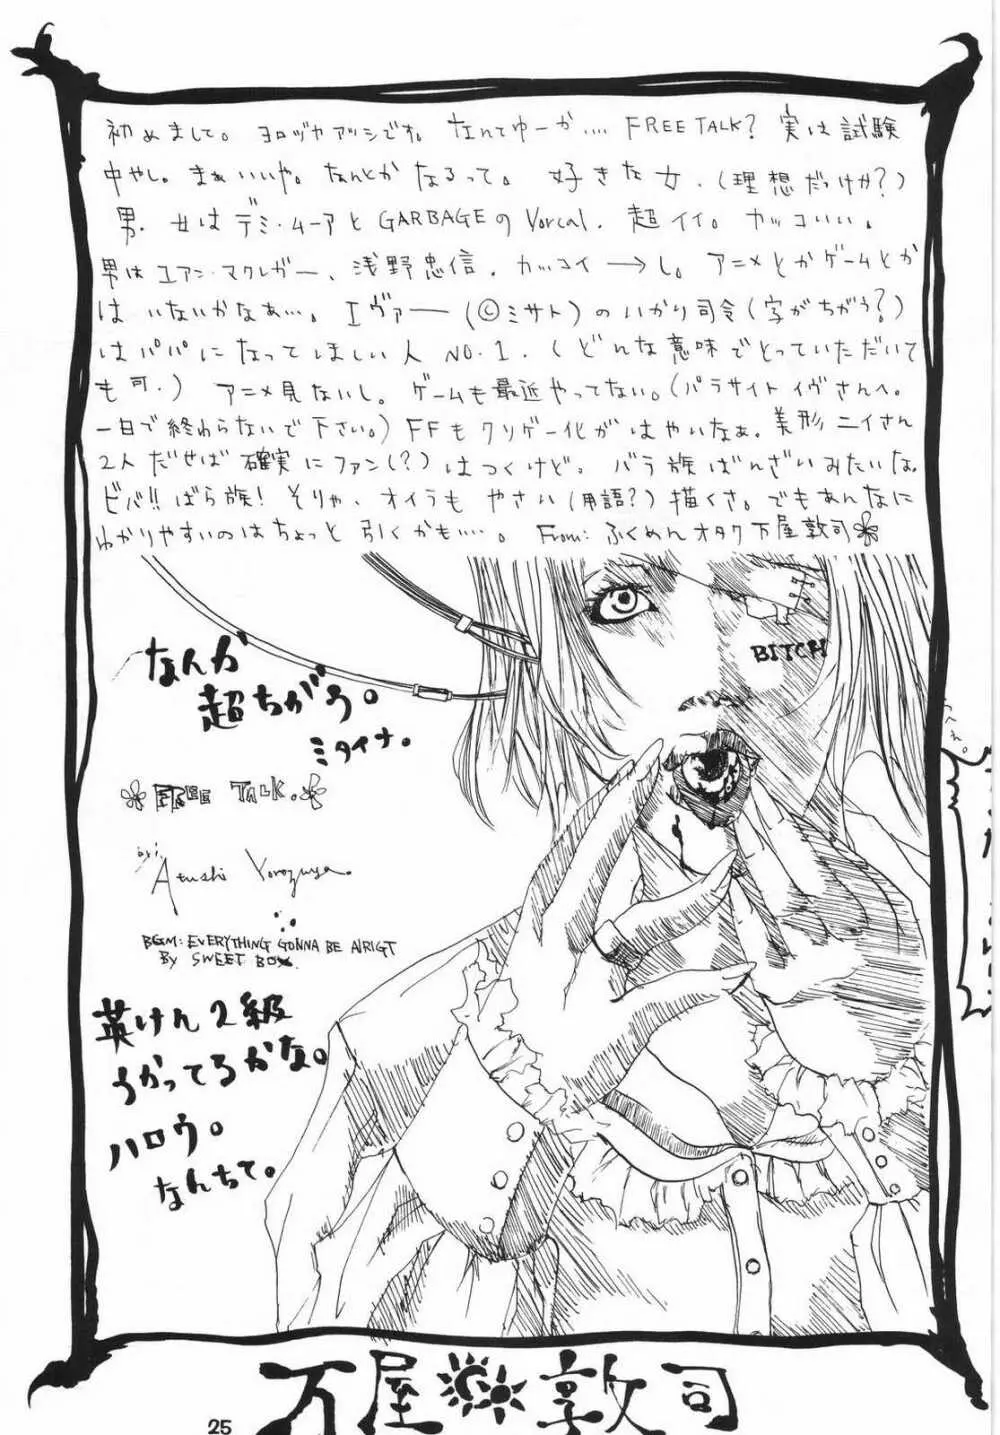 初めまして。ヨロヅヤアツシです。なんてゆーか.... FREE TALK? 実は試験
中やし。まぁいいや。なんとかなるって。好きな女.(理想だっけか?)
男.女はデミ・ムーアとGARBAGEのVorcal.超イイ。カッコいい。
男はユアン・マクレガー、浅野忠信.カッコイ→し。アニメとかゲームとか
はいないかなぁ…。エヴァー(©ミサト)のいかり司令(字がちがう?)
はパパになってほしい人NO.1.(どんな意味でとっていただいて
も可.)アニメ見ないし。ゲームも最近やってない。(パラサイトイヴさんへ。
一日で終わらないで下さい。)FFもクソゲー化がはやいなぁ。美形ニイさん
2人だせば確実にファン(?)はつくけど。バラ族ばんざいみたいな。
ビバ!!ばら族!そりゃ、オイラもやさい(用語?)描くさ。でもあんなに
わかりやすいのはちょっと引くかも….。From:ふくめんオタク万屋敦司
BITCH
なんか
超ちがう。
ミタイナ。
FREE TALK.
by.
Atushi Yorozuya.
BGM:EVERYTHING GONNA BE AlRIGT
BY SWEET BOX.
英けん2級
うかってるかな。
ハロウ。
なんちて。
万屋敦司
25